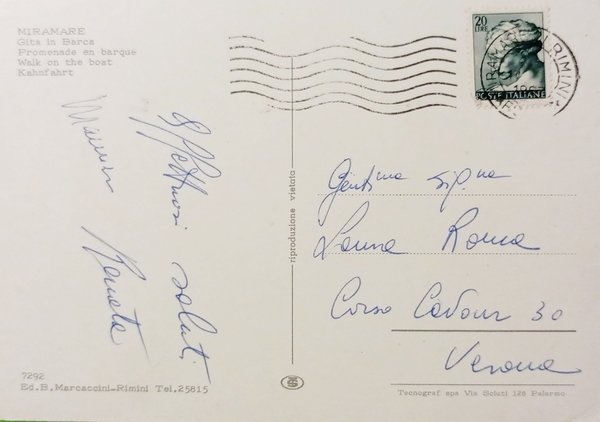 MIRAMARE
Gita in Barca
Promenade en barque
Walk on the boat
Kahnfahrt
Affettuosi saluti
Renata
7292
Ed.B.Marcaccini-Rimini Tel.25815
riproduzione vietata
20
LIRE
POSTE ITALIANE
MIRAMARE RIMINI
Gent.ma Sig.na
Roma
Corso Cavour 30
Verona
Tecnograf spa Via Sciuti 126 Palermo